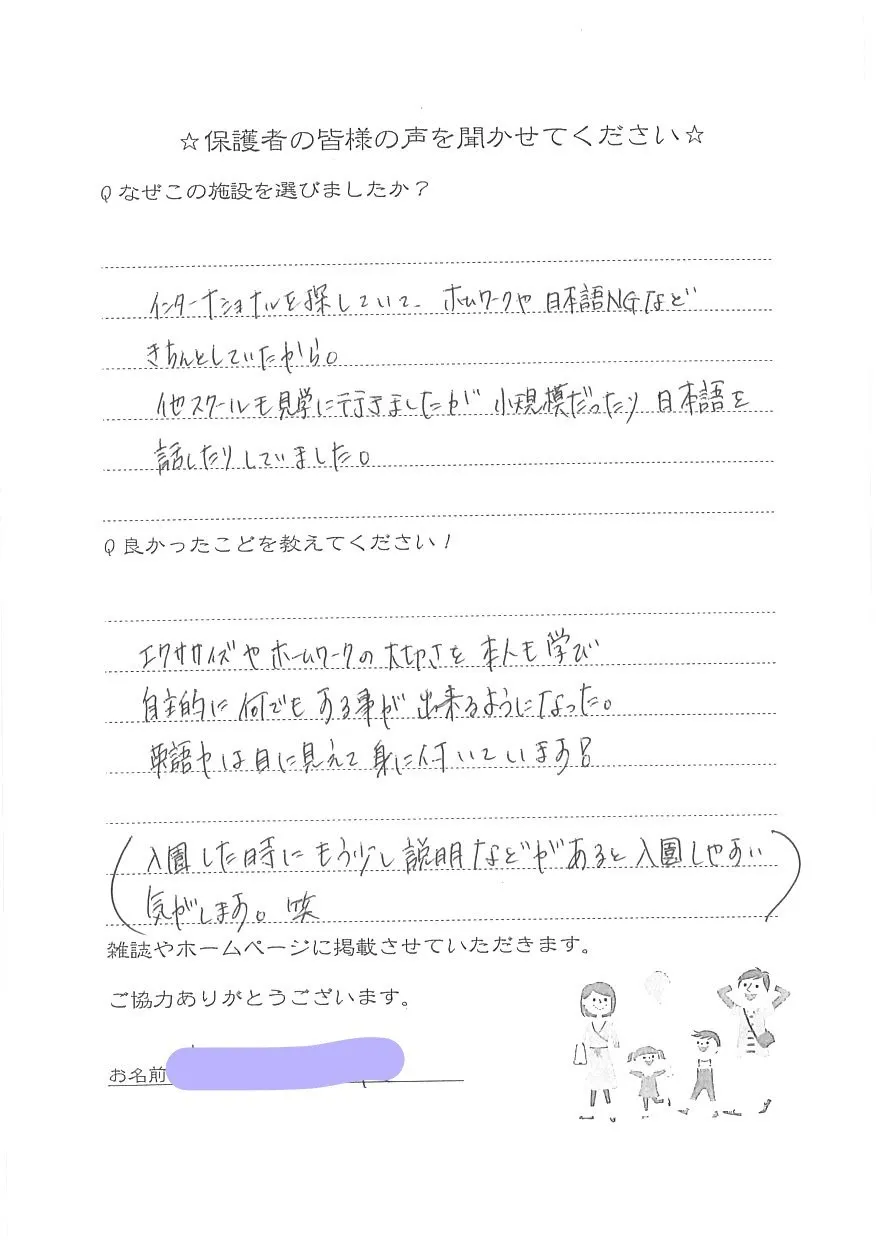 ☆保護者の皆様の声を聞かせてください☆
Q なぜこの施設を選びましたか？
インターナショナルを探していて、ホームワークや日本語NGなど
きちんとしていたから。
他スクールも見学に行きましたが 小規模だったり 日本語を
話したりしていました。
Q 良かったことを教えてください！
エクササイズやホームワークの大切さを本人も学び
自主的に何でもする事が出来るようになった。
英語力は目に見えて身に付いています!!
(入園した時にもう少し説明などがあると入園しやすい
気がします。笑)
雑誌やホームページに掲載させていただきます。
ご協力ありがとうございます。
お名前